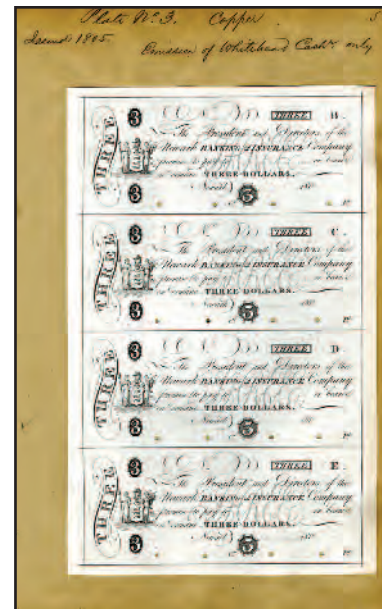 Plate No. 3. Copper. 5
Issued 1805.
Emission of Whitehead Cashr. only
THREE
3 THREE B.
The President and Directors of the
Newark BANKING & INSURANCE Company
promise to pay to or bearer
on demand THREE DOLLARS.
Newark
3 3
THREE
3 THREE C.
The President and Directors of the
Newark BANKING & INSURANCE Company
promise to pay to or bearer
on demand THREE DOLLARS.
Newark
3 3
THREE
3 THREE D.
The President and Directors of the
Newark BANKING & INSURANCE Company
promise to pay to or bearer
on demand THREE DOLLARS.
Newark
3 3
THREE
3 THREE E.
The President and Directors of the
Newark BANKING & INSURANCE Company
promise to pay to or bearer
on demand THREE DOLLARS.
Newark
3 3